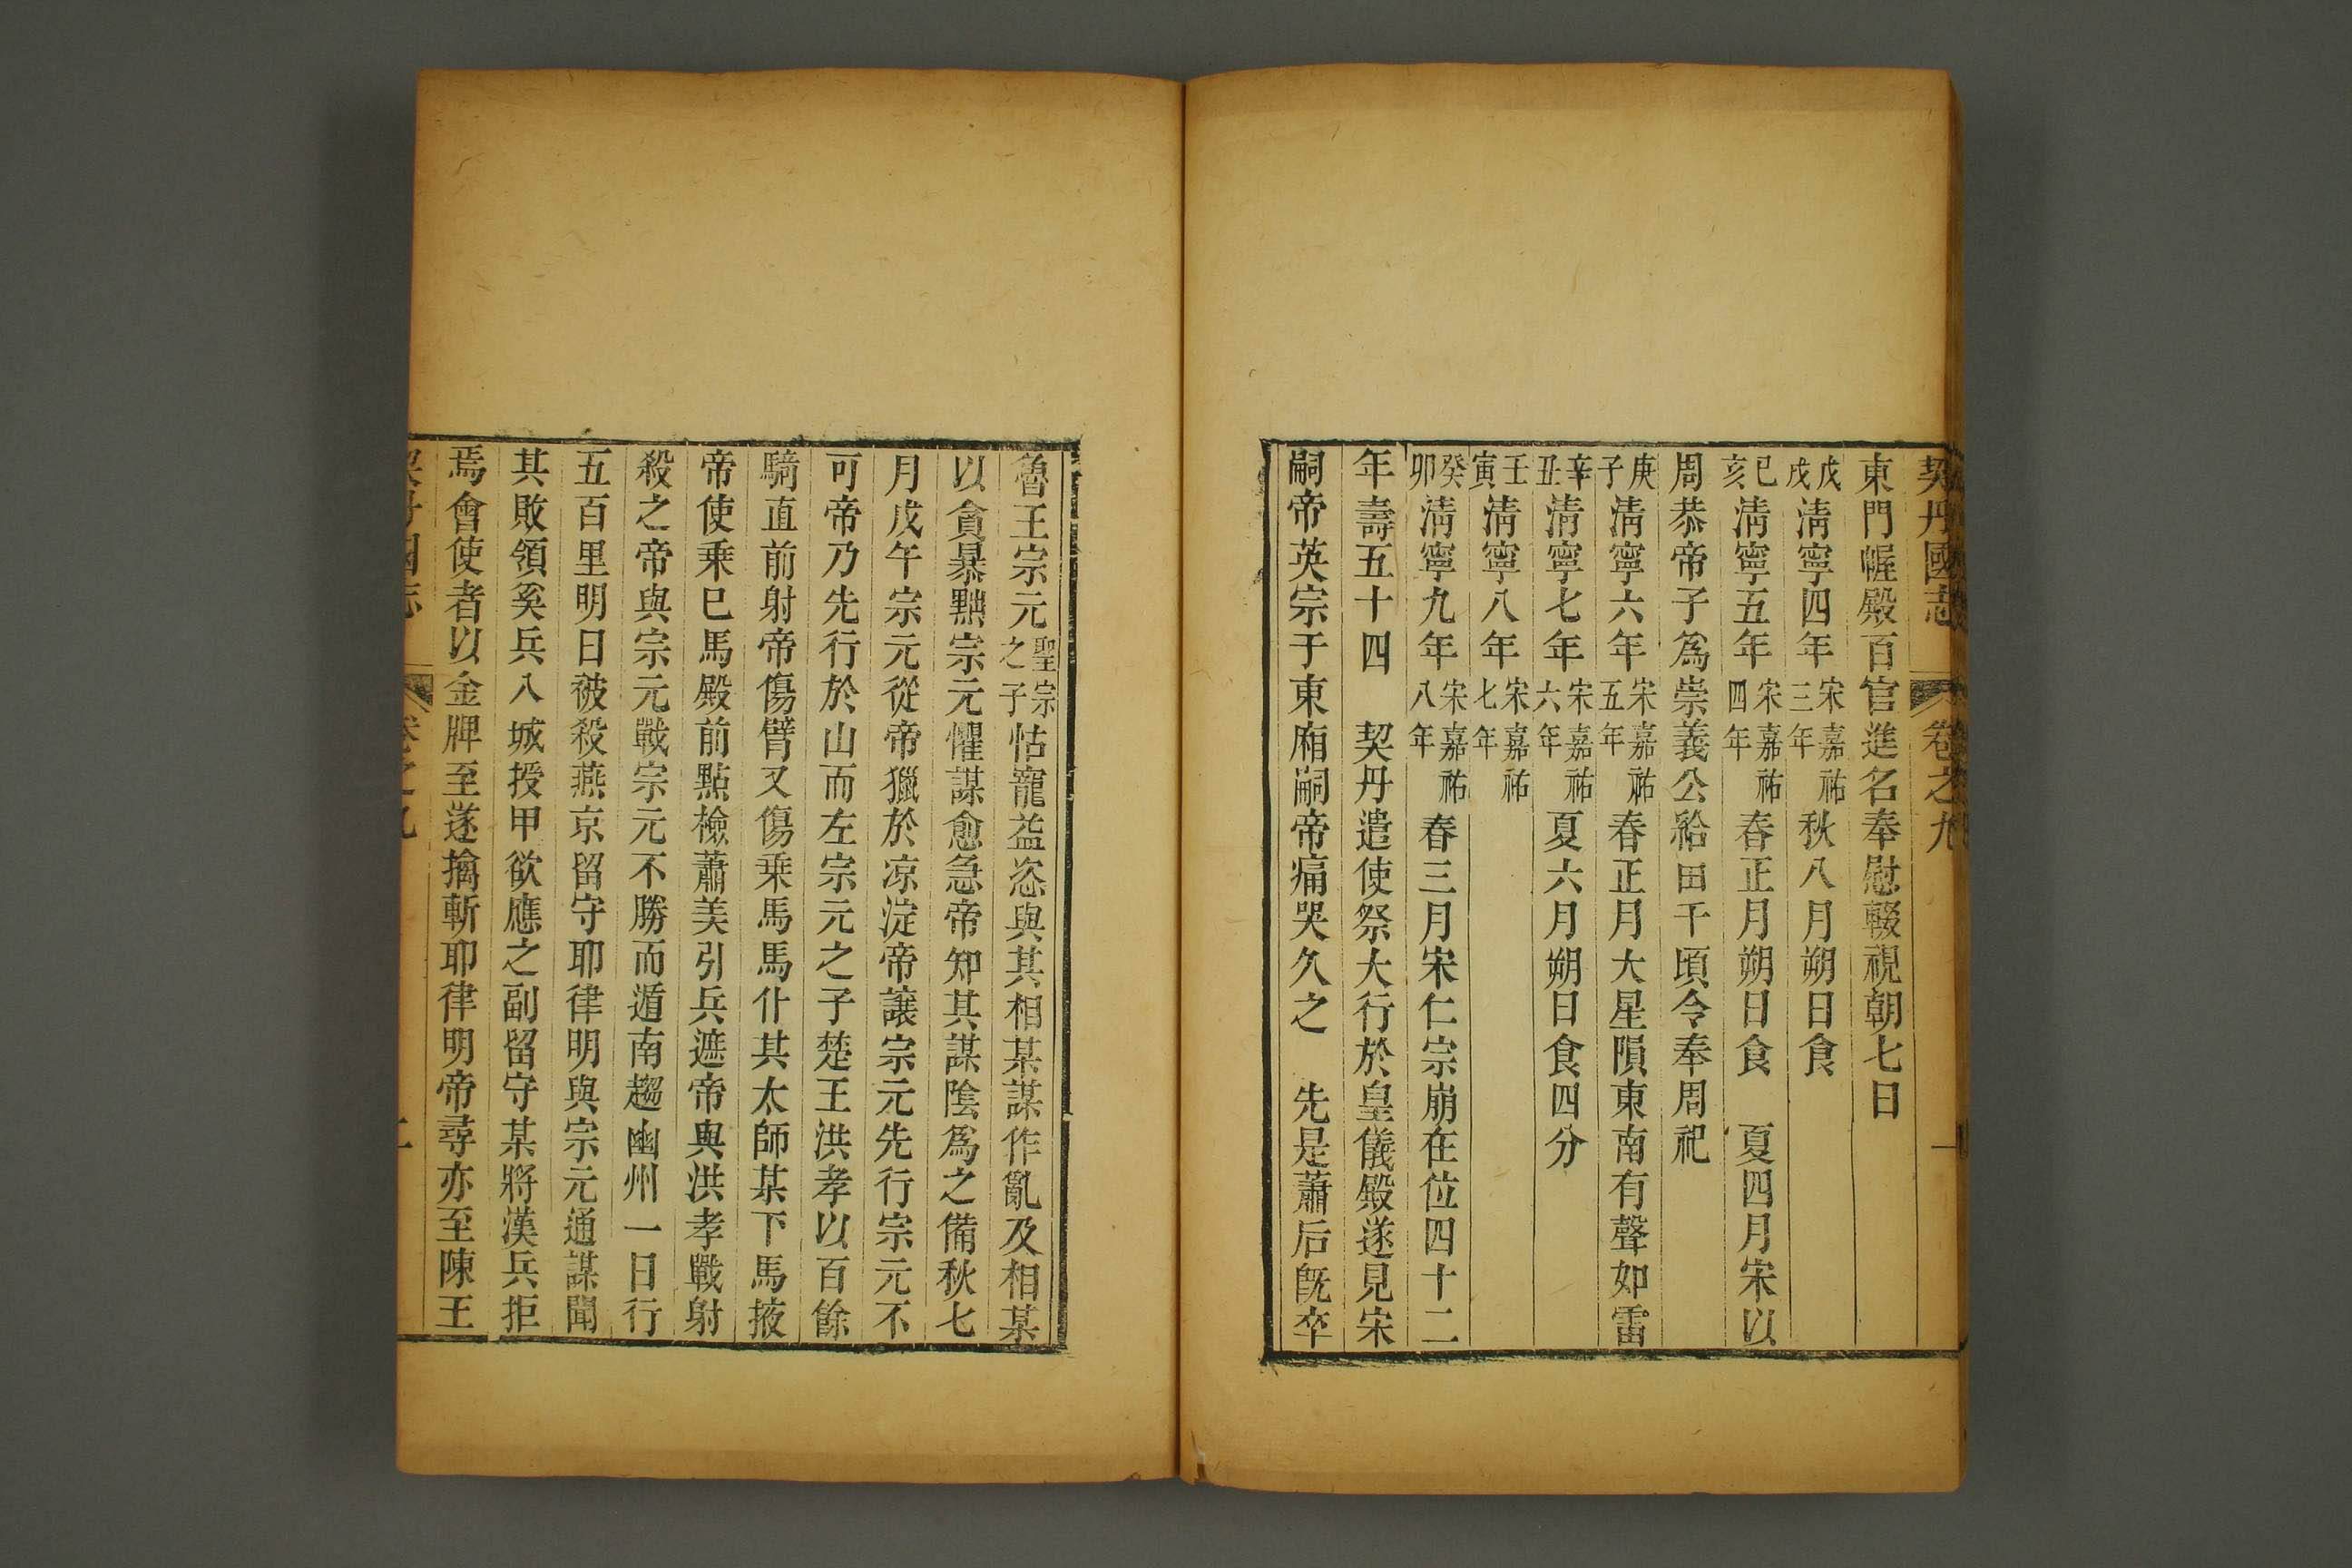 契丹國志 卷之九 一
東門幄殿百官進名奉慰輟視朝七日
戊戌清寧四年宋嘉祐三年秋八月朔日食
己亥清寧五年宋嘉祐四年春正月朔日食 夏四月宋以
周恭帝子爲崇義公給田千頃令奉周祀
庚子清寧六年宋嘉祐五年春正月大星隕東南有聲如雷
辛丑清寧七年宋嘉祐六年夏六月朔日食四分
壬寅清寧八年宋嘉祐七年
癸卯清寧九年宋嘉祐八年春三月宋仁宗崩在位四十二
年壽五十四 契丹遣使祭大行於皇儀殿遂見宋
嗣帝英宗于東廂嗣帝痛哭久之 先是蕭后旣卒
魯王宗元聖宗之子怙寵益恣與其相某謀作亂及相某
以貪暴黜宗元懼謀愈急帝知其謀陰爲之備秋七
月戊午宗元從帝獵於凉淀帝讓宗元先行宗元不
可帝乃先行於山而左宗元之子楚王洪孝以百餘
騎直前射帝傷臂又傷乘馬馬仆其太師某下馬掖
帝使乘已馬殿前點檢蕭美引兵遮帝與洪孝戰射
殺之帝與宗元戰宗元不勝而遁南趨幽州一日行
五百里明日被殺燕京留守耶律明與宗元通謀聞
其敗領奚兵入城授甲欲應之副留守某將漢兵拒
焉會使者以金牌至遂擒斬耶律明帝尋亦至陳王
契丹國志 卷之九 二